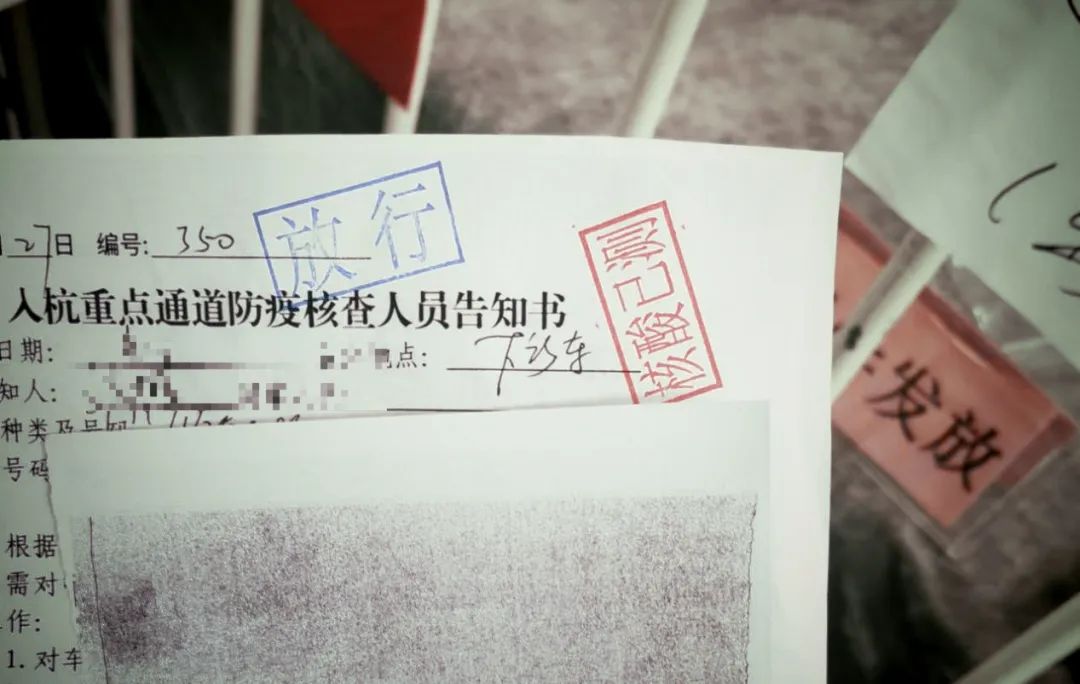 27日 编号: 350
放行
核酸已测
入杭重点通道防疫核查人员告知书
日期:
点: 下沙车
知人:
种类及号码
号码
根据
需对
作:
1. 对车
发放